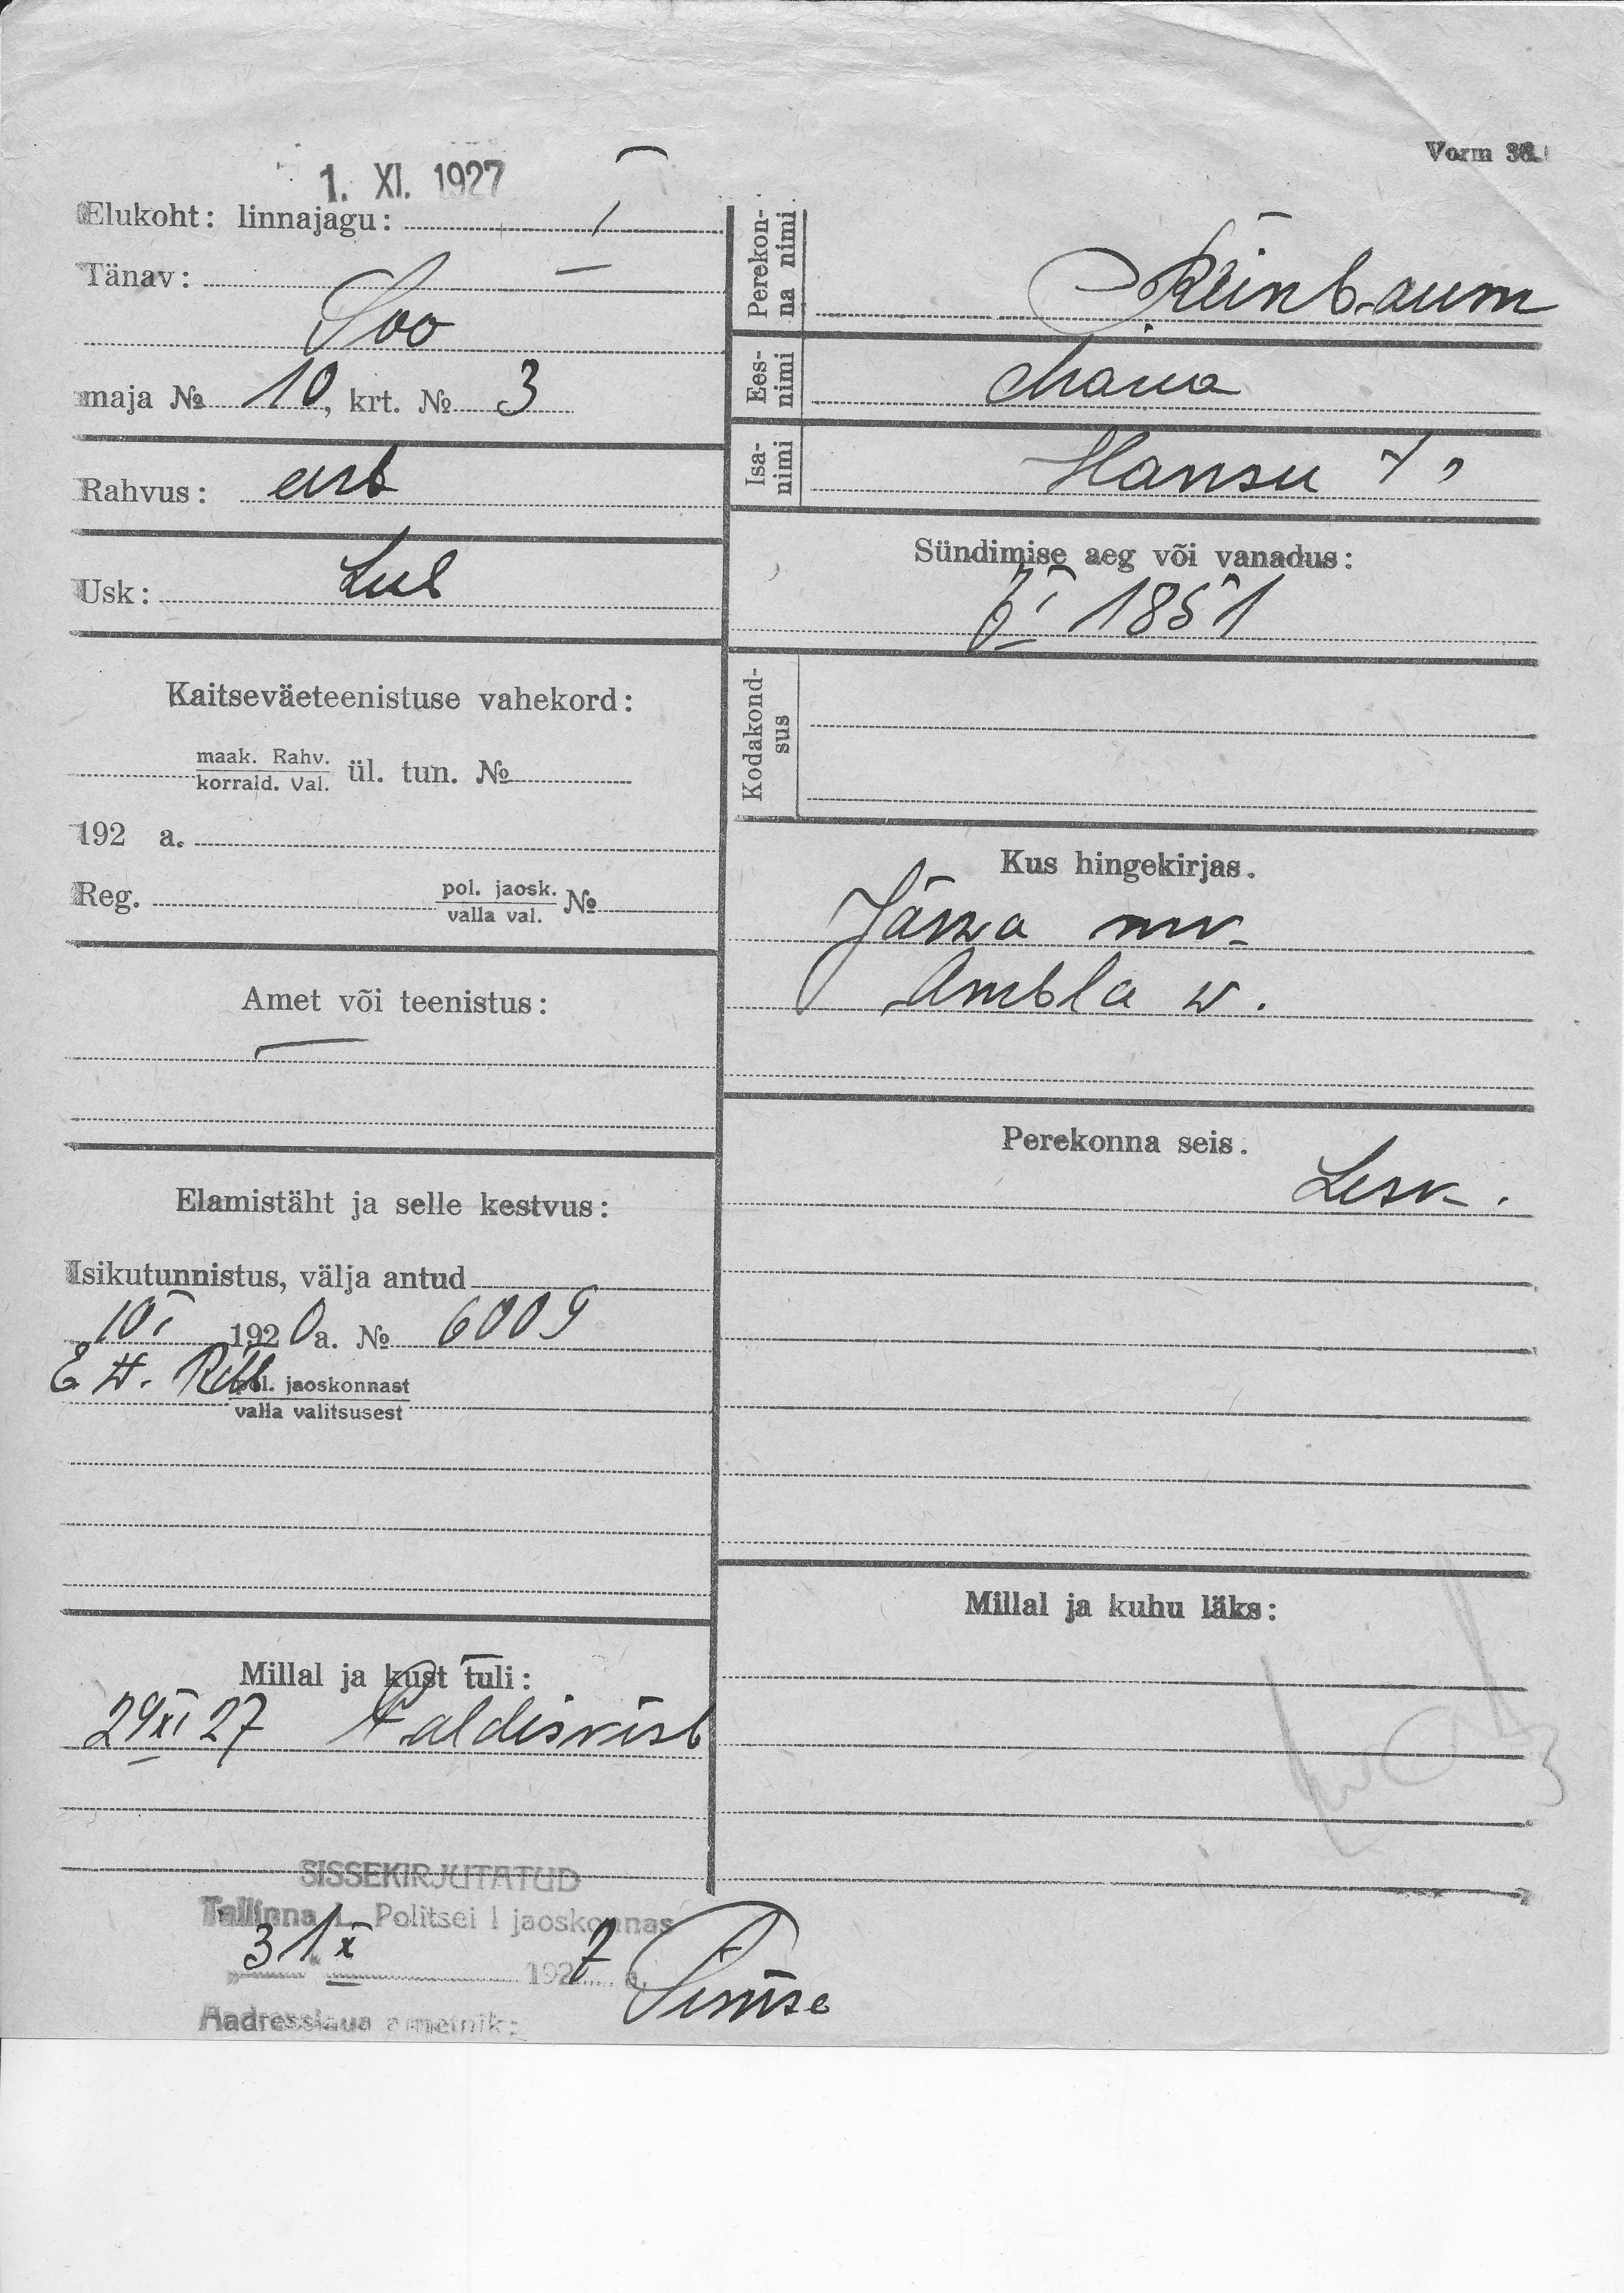 Vorm 36.
1. XI. 1927
Elukoht: linnajagu: I
Tänav:
Soo
maja № 10, krt. № 3
Rahvus: eest
Usk: Lut
Kaitseväeteenistuse vahekord:
maak. Rahv.
korrald. Val.
ül. tun. №
192 a.
Reg.
pol. jaosk.
valla val.
№
Amet või teenistus:
—
Elamistäht ja selle kestvus:
Isikutunnistus, välja antud
1920 a. № 6009
pol. jaoskonnast
valla valitsusest
Millal ja kust tuli:
27 Paldiskist
SISSEKIRJUTATUD
Tallinna L. Politsei I jaoskonnas
31 X 1927 a.
Aadresslaua ametnik:
Perekon-
na nimi
Reinbaum
Ees-
nimi
Maria
Isa-
nimi
Hansu t.
Sündimise aeg või vanadus:
1851
Kodakond-
sus
Kus hingekirjas.
Järva mk.
Ambla w.
Perekonna seis.
Lesk.
Millal ja kuhu läks: